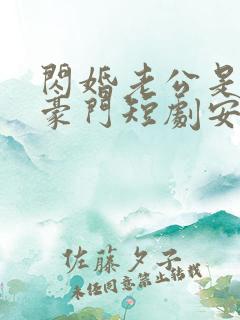 閃婚老公是
豪門短劇安
佐藤夕子
未经同意禁止转载